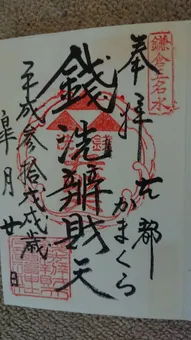 鎌倉五名水
奉拝 古都
かまくら
銭洗辨財天
平成参拾戊戌歳
皐月廿日